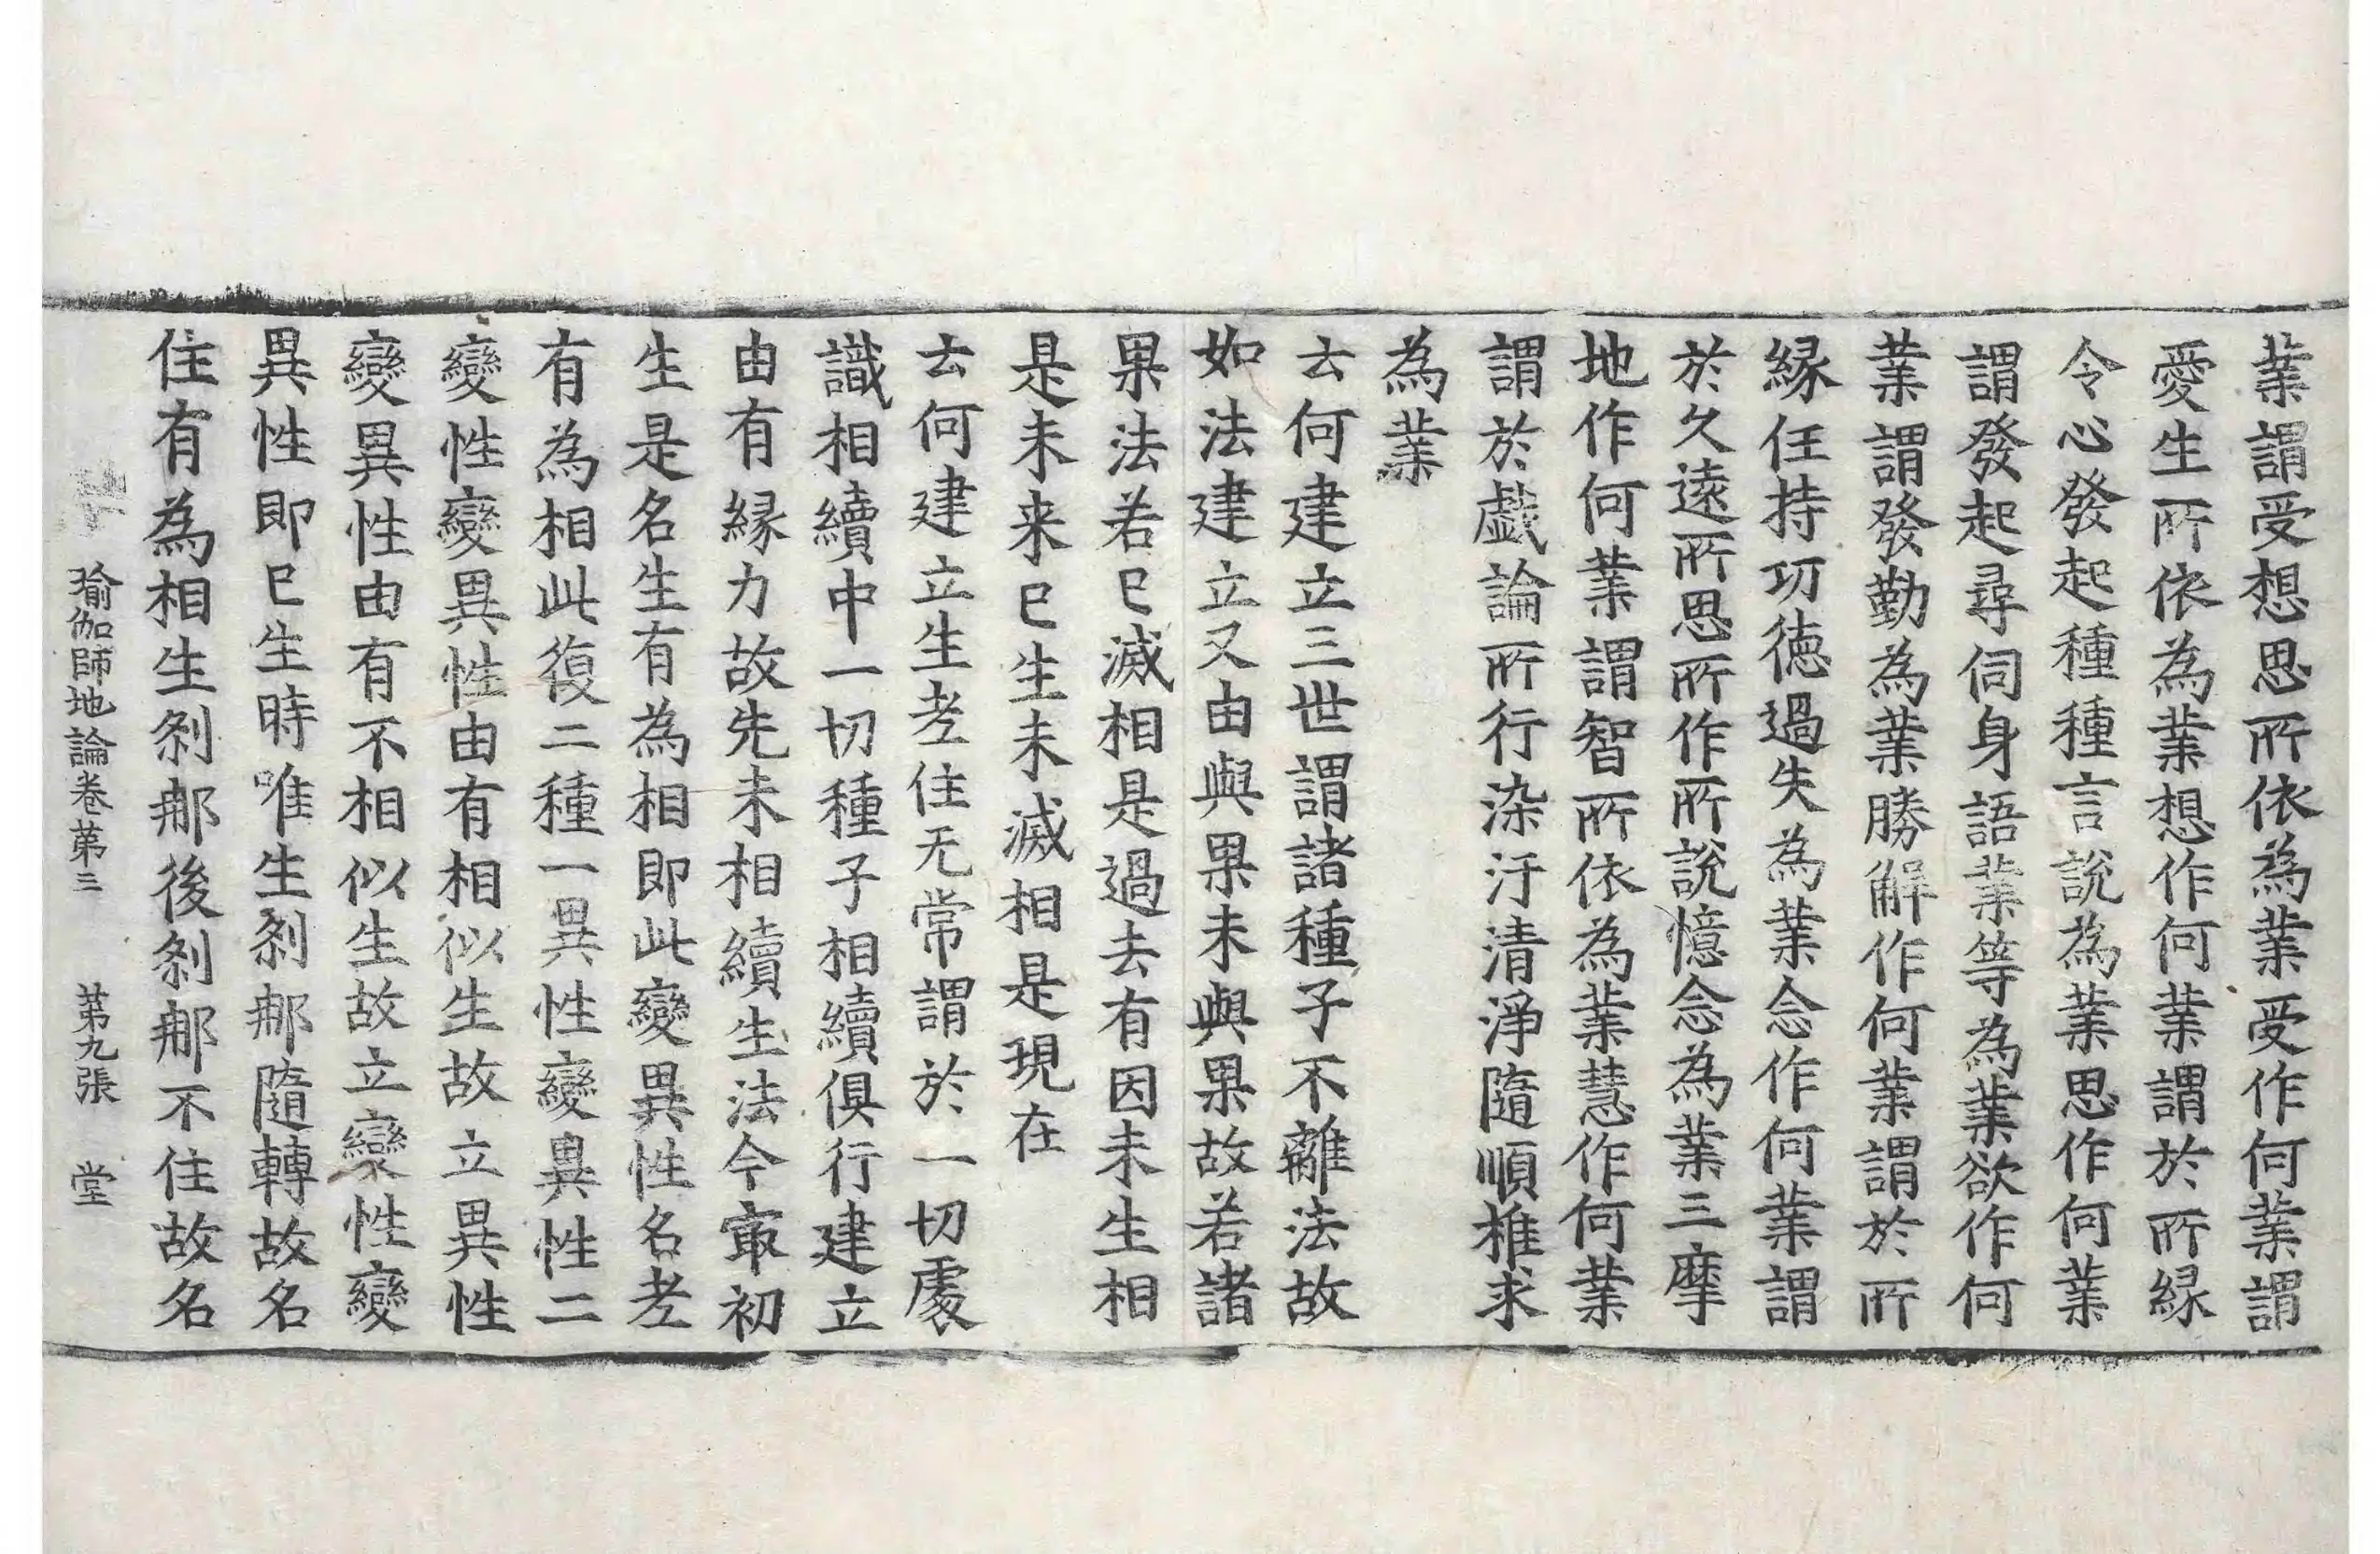 業謂受想思所依為業受作何業謂
愛生所依為業想作何業謂於所緣
令心發起種種言說為業思作何業
謂發起尋伺身語業等為業欲作何
業謂發勤為業勝解作何業謂於所
緣任持功德過失為業念作何業謂
於久遠所思所作所說憶念為業三摩
地作何業謂智所依為業慧作何業
謂於戲論所行染汙清淨隨順推求
為業
云何建立三世謂諸種子不離法故
如法建立又由與果未與果故若諸
果法若已滅相是過去有因未生相
是未来已生未滅相是現在
云何建立生老住无常謂於一切處
識相續中一切種子相續俱行建立
由有緣力故先未相續生法今㝡初
生是名生有為相即此變異性名老
有為相此復二種一異性變異性二
變性變異性由有相似生故立異性
變異性由有不相似生故立變性變
異性即已生時唯生刹那隨轉故名
住有為相生刹那後刹那不住故名
瑜伽師地論卷第三 第九張 堂